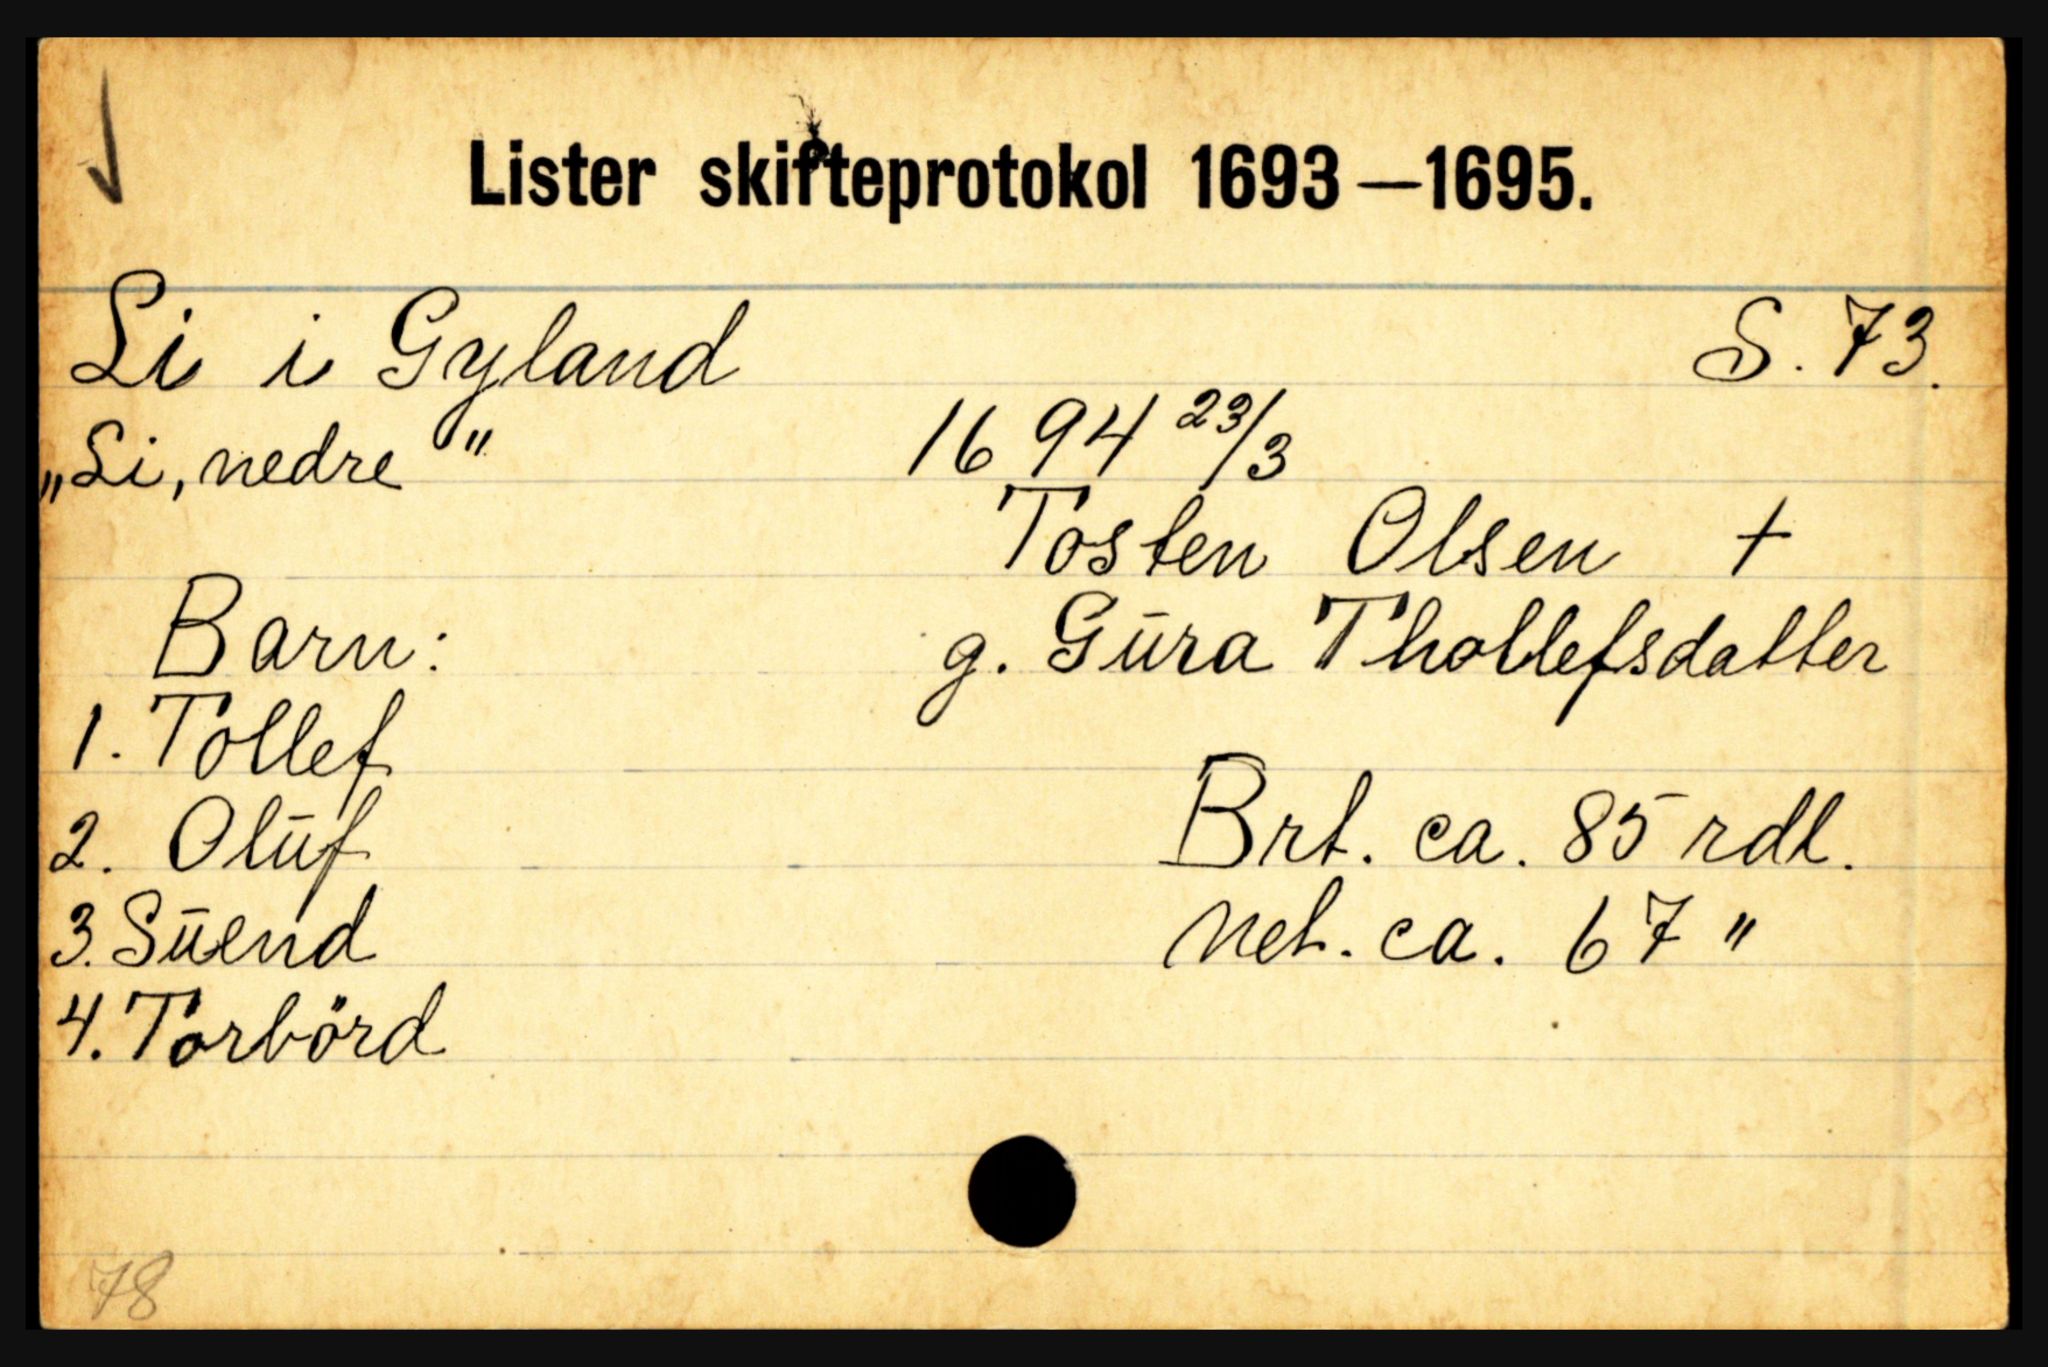 Lister skifteprotokol 1693—1695.
Li i Gyland S. 73.
„Li, nedre" 1694 23/3
Tosten Olsen +
Barn: g. Gūra Thollefsdatter
1. Tollef
2. Olūf Brt. ca. 85 rdl.
3. Sūend net. ca. 67 "
4. Torbörd
78